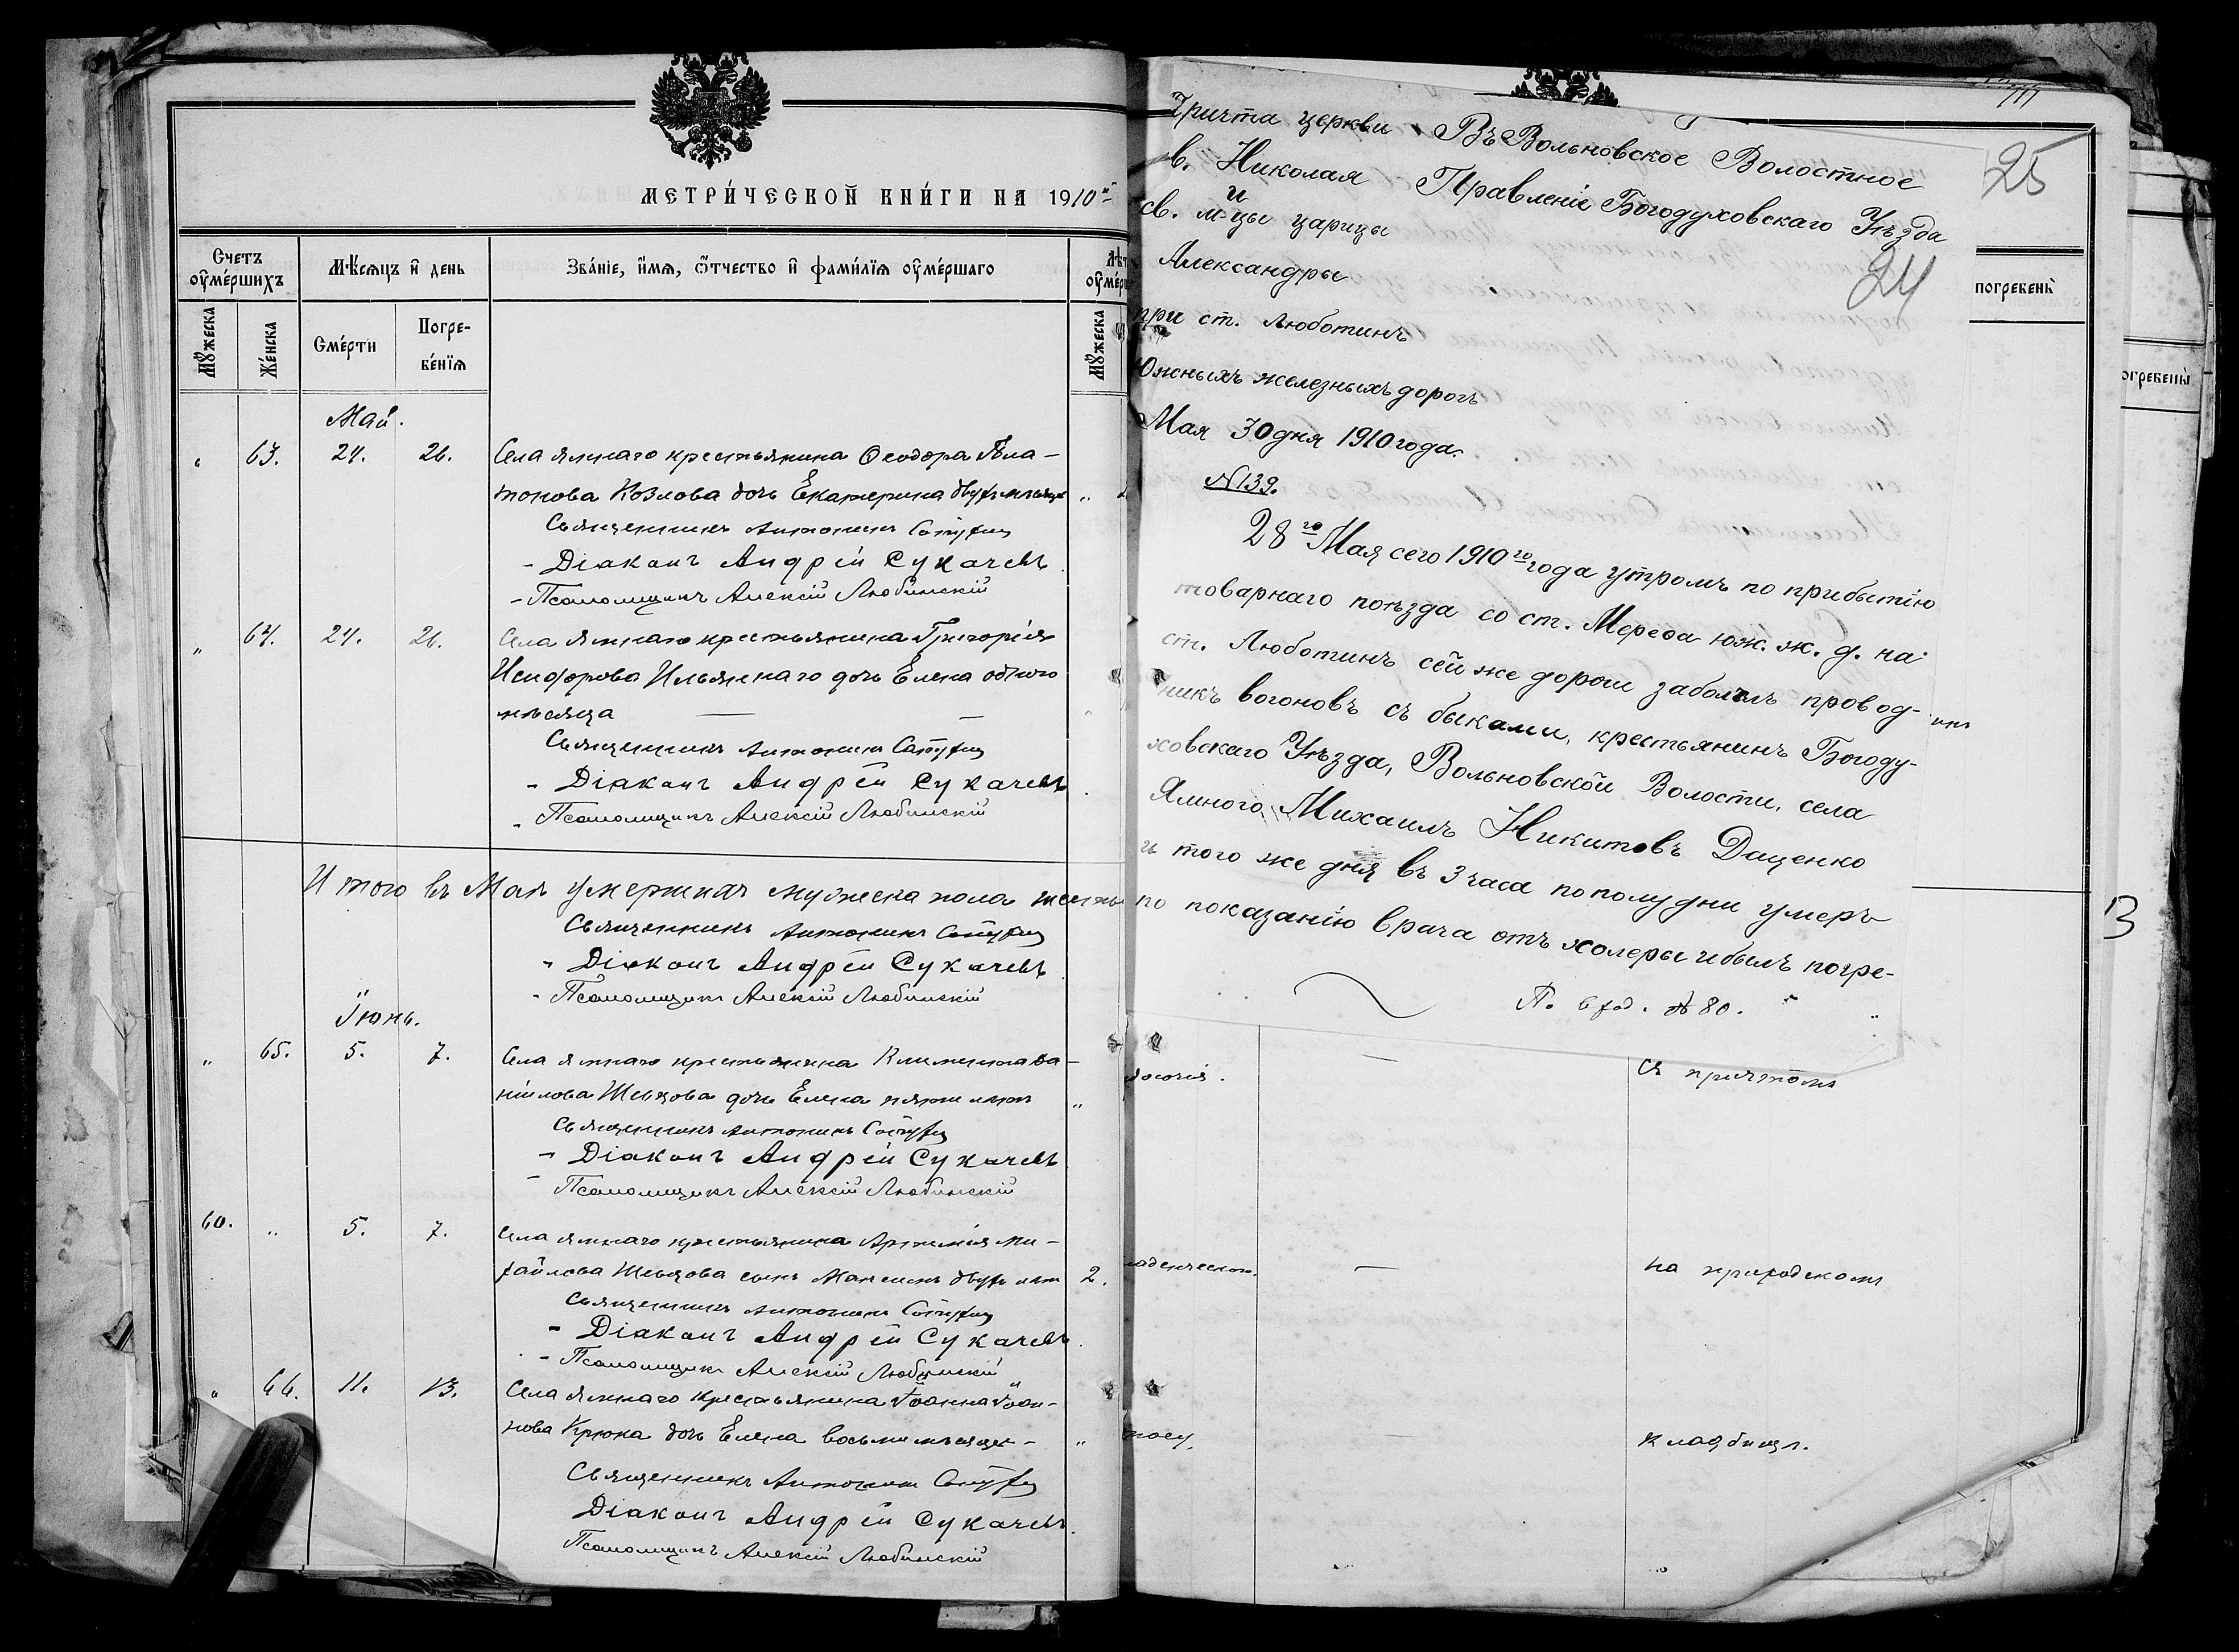 МЕТРИ́ЧЕСКОЙ КНИ́ГИ НА 1910й
Счетъ ѹ҆ме́ршихъ
Мѣ́сяцъ и҆ день
Зва́нїе, и҆́мя, ѻ҆́тчество и҆ фами́лїѧ ѹ҆ме́ршаго
Мꙋ́жеска
Же́нска
Сме́рти
Погре-
бе́нїѧ
Мꙋ́жеска
Май.
" 63. 24. 26. Села Ямнаго крестьянина Ѳеодора Пла-
тонова Козлова дочь Екатерина двухъ мѣсяцевъ "
Священникъ Антонинъ
- Діаконъ Андрей Сукачевъ.
- Псаломщикъ Алексій Любинскій
" 64. 24. 26. Села Ямнаго крестьянина Григорія
Исидорова Ильинскаго дочь Елена одного
мѣсяца — —
Священникъ Антонинъ
- Діаконъ Андрей Сукачевъ.
- Псаломщикъ Алексій Любинскій
Итого въ Маѣ умершихъ мужеска пола
Священникъ Антонинъ
- Діаконъ Андрей Сукачевъ.
- Псаломщикъ Алексій Любинскій
Іюнь.
" 65. 5. 7. Села Ямнаго крестьянина Климента Да-
ніилова Шевцова дочь Елена пяти лѣтъ "
Священникъ Антонинъ
- Діаконъ Андрей Сукачевъ
- Псаломщикъ Алексій Любинскій
60. " 5. 7. Села Ямнаго крестьянина Артемія Ми-
хайлова Шевцова сынъ двухъ лѣтъ 2.
Священникъ Антонинъ
- Діаконъ Андрей Сукачевъ.
- Псаломщикъ Алексій Любинскій
" 66. 11. 13. Села Ямнаго крестьянина Іоанна Іоан-
нова Крюка дочь Елена восьми мѣсяцевъ - "
Священникъ Антонинъ
Діаконъ Андрей Сукачевъ.
Псаломщикъ Алексій Любинскій
Причта церкви
в. Николая
и
св. м-цы царицы
Александры
при ст. Люботинъ
Южныхъ железныхъ дорогъ
Мая 30 дня 1910 года.
N 139.
Въ Вольновское Волостное
Правленіе Богодуховскаго Уѣзда
25
24
погребены
огребены
28го Мая сего 1910го года утромъ по прибытію
товарнаго поѣзда со ст. Мерефа юж. ж. д. на
ст. Люботинъ сей же дороги заболѣлъ провод-
никъ вогоновъ съ быками, крестьянинъ Богоду-
ховскаго Уѣзда, Вольновской Волости, села
Ямного, Михаилъ Никитовъ Даценко
и того же дня въ 3 часа по полудни умеръ
по показанію врача отъ холеры и былъ погре-
П. вход. № 80.
В
— Съ причтомъ
— На приходскомъ
— кладбищѣ.